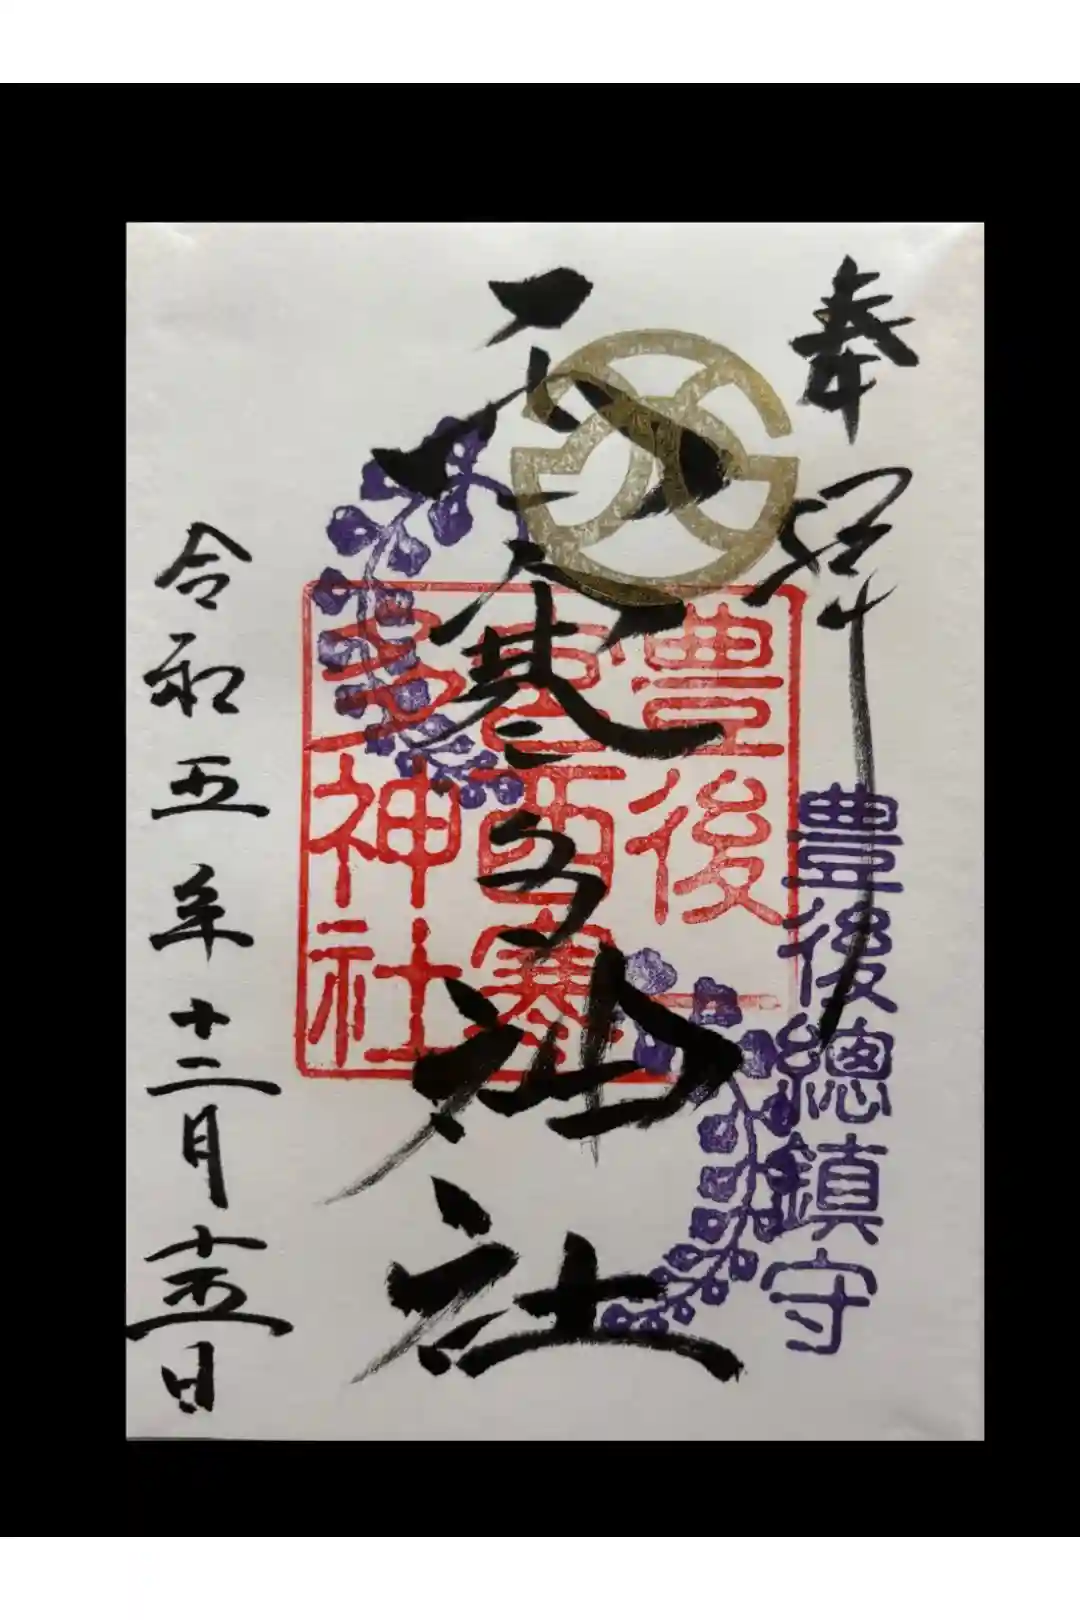 奉拝
豊後總鎮守
西寒多神社
豊後
一宮西寒
多神社
令和五年十二月十五日